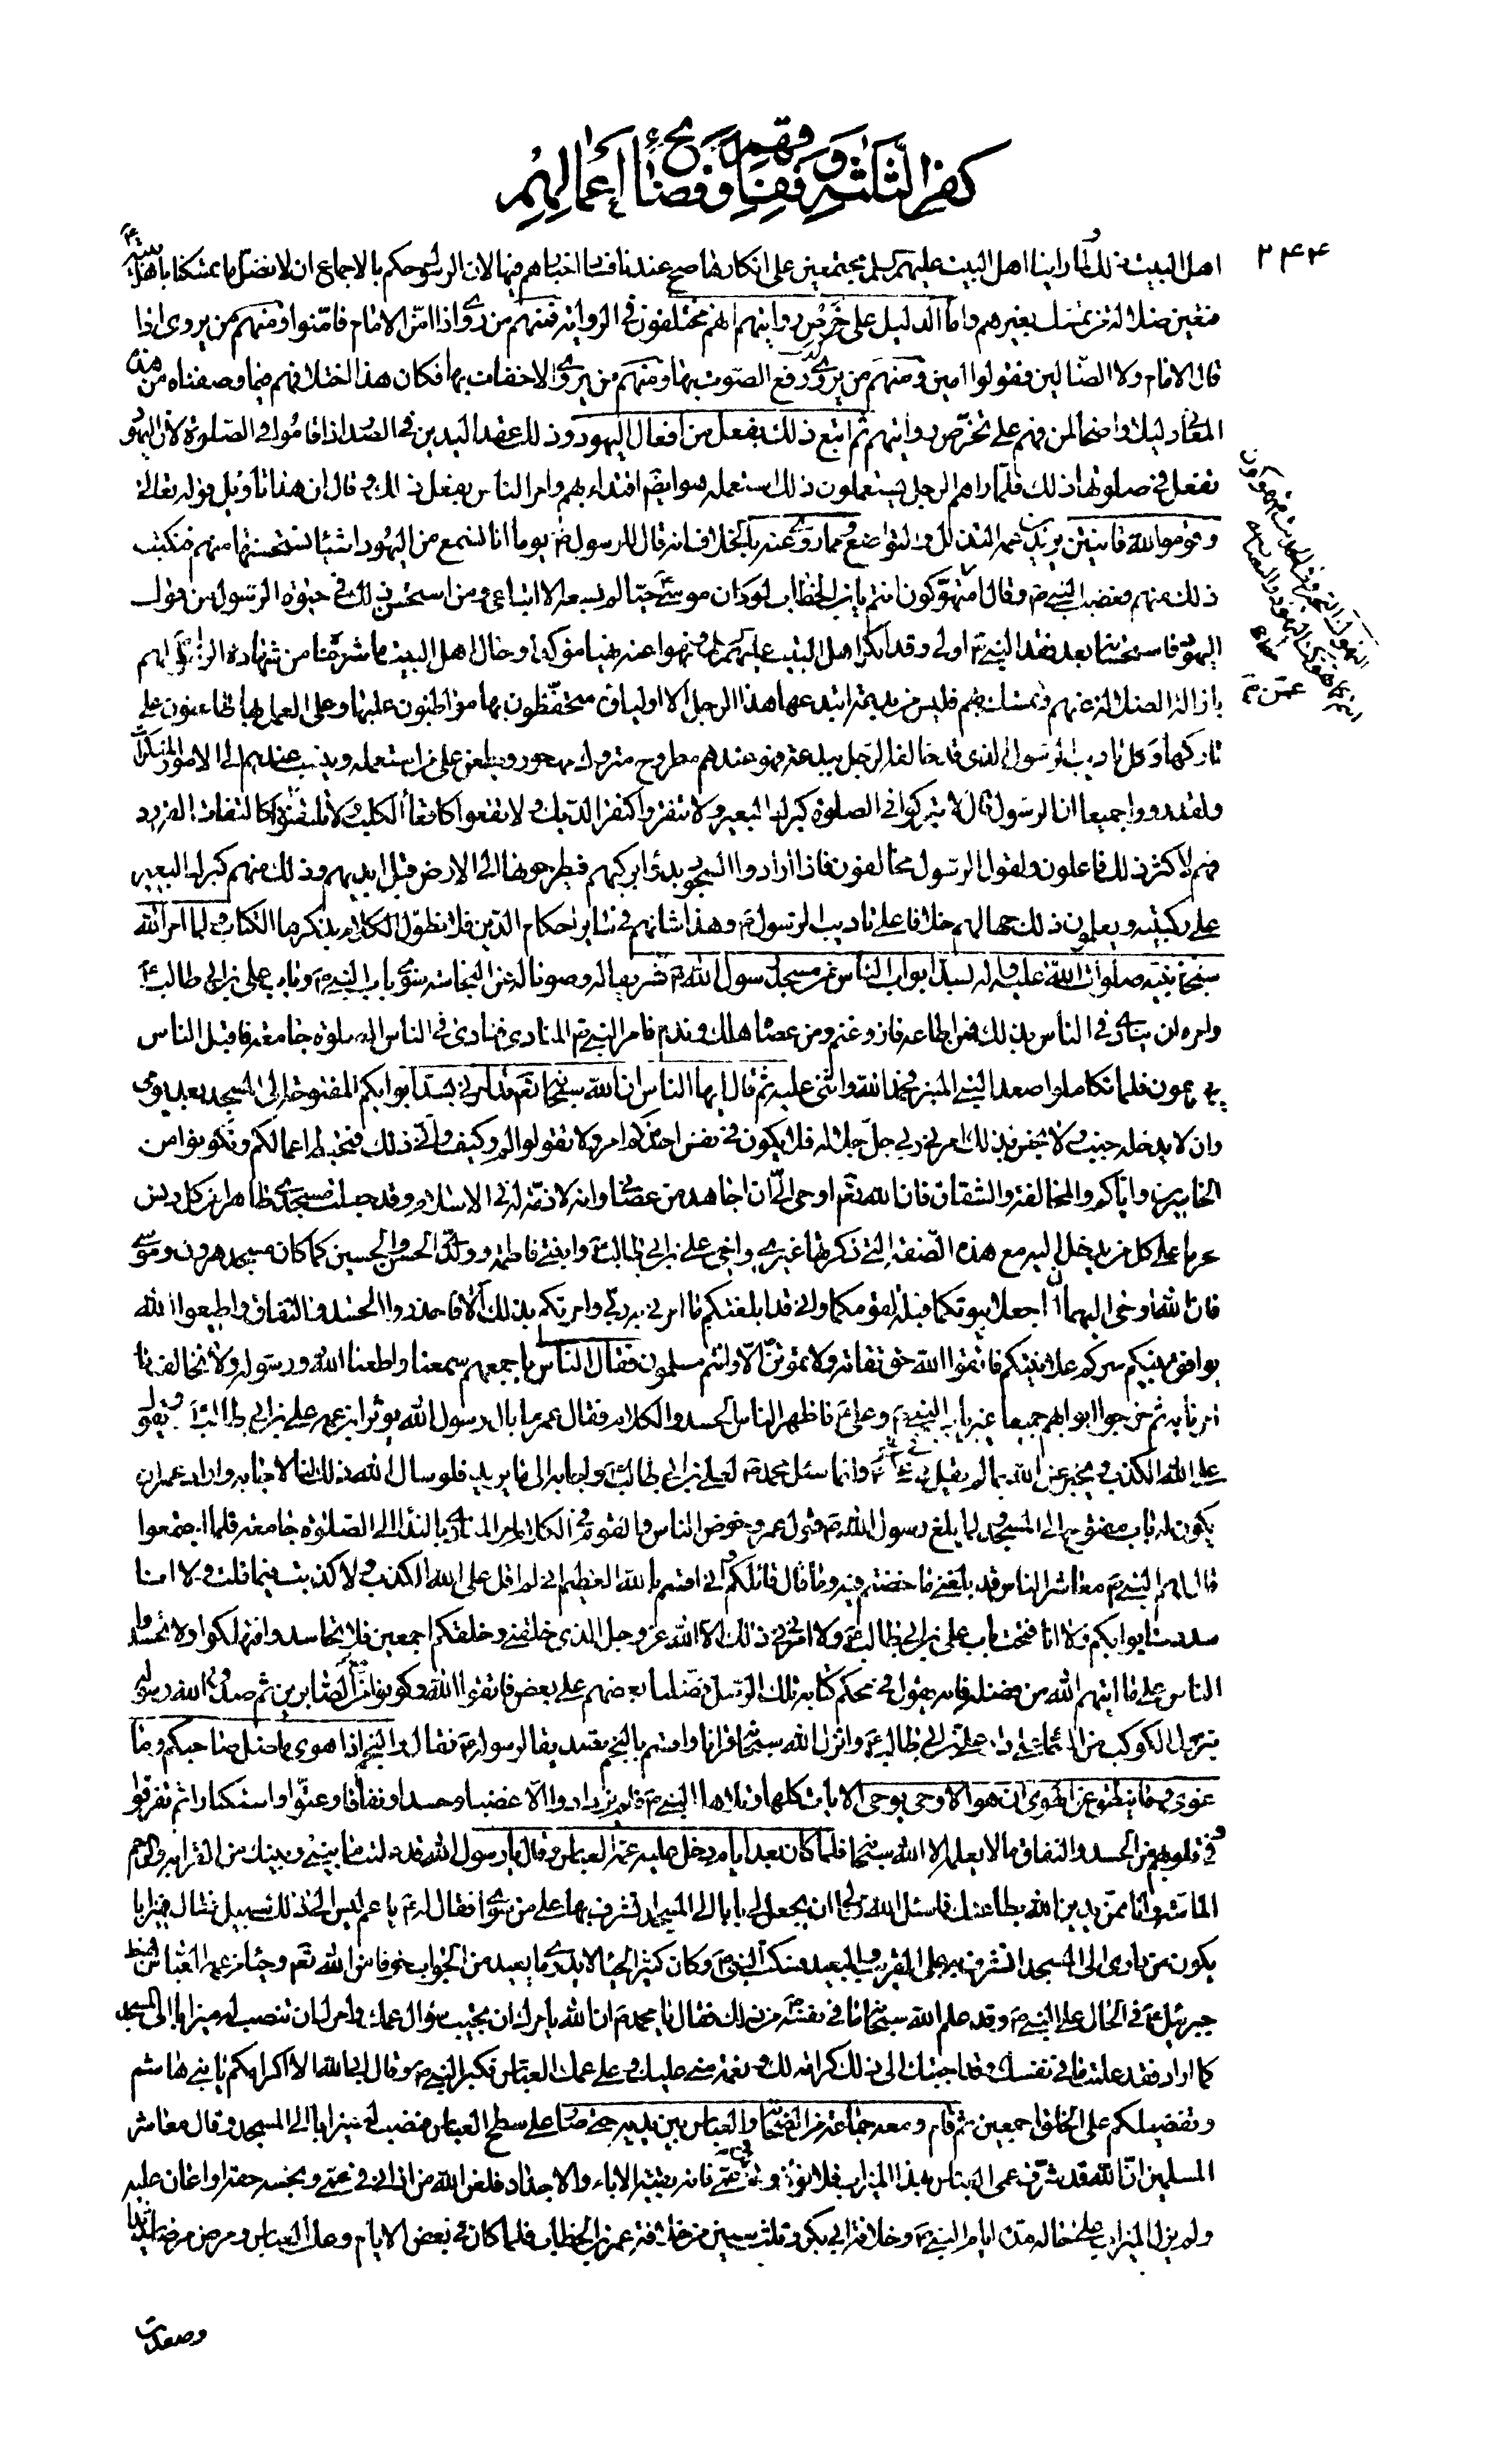 كفر الثلاثة ونفاقهم وفضائح أعمالهم
٢٤٤
اهل البيت ذلك ولما راينا اهل البيت عليهم كلهم مجتمعين على انكارها صح عندنا فساد اخبارهم فيها لان الرسول حكم بالاجماع ان لا نضل ما تمسكنا باهل بيته
فتعين ضلالة من تمسك بغيرهم واما الدليل على خرص روايتهم انهم مختلفون في الرواية فمنهم من روى اذا امن الامام فامنوا ومنهم من يروى اذا
قال الامام ولا الضالين فقولوا امين ومنهم من يروى رفع الصوت بها ومنهم من يروى الاخفات بها فكان هذا اختلافهم فيما وصفناه من هذه
المعاني دليلا واضحا لمن فهم على تخرص روايتهم ثم اتبع ذلك بفعل من افعال اليهود وذلك عقد اليدين في الصدر اذا قاموا في الصلوة لان اليهود
تفعل في صلوتها ذلك فلما راهم الرجل يستعملون ذلك استعمله هو ايضا اقتداء بهم وامر الناس بفعل ذلك وقال ان هذا تاويل قوله تعالى
وقوموا لله قانتين يريد بزعمه التذلل والتواضع ومما روى عنه بالخلاف انه قال للرسول ص يوما انا لنسمع من اليهود اشياء نستحسنها منهم فنكتب
ذلك منهم فغضب النبي ص وقال امتهوكون انتم يابن الخطاب لو كان موسى حيا لم يسعه الا اتباعي ومن استحسن ذلك في حيوة الرسول من قول
اليهود فاستحسانه بعد فقد النبي ص اولى وقد انكر اهل البيت عليهم ونهوا عنه نهيا مؤكدا وحال اهل البيت ما شرحنا من شهادة الرسول لهم
بازالة الضلالة عنهم وعمن تمسك بهم فليس من بدعة ابتدعها هذا الرجل الا اولياؤه متحفظون بها مواظبون عليها وعلى العمل بها طاعنون على
تاركها وكل تاديب الرسول الذي قد خالفه الرجل ببدعة فهو عندهم مطروح متروك مهجور ويطعن على من استعمله وينسب عندهم الى الامور المنكرات
ولقد رووا جميعا ان الرسول قال لا تبركوا في الصلوة كبرك البعير ولا تنقروا كنقر الديك ولا تقعوا كاقعاء الكلب ولا تلتفتوا كالتفات القرود
فهم لاكثر ذلك فاعلون ولقول الرسول مخالفون فاذا ارادوا السجود بدؤا بركبهم فيطرحونها الى الارض قبل ايديهم وذلك منهم كبرك البعير
على ركبتيه ويعلمون ذلك جهالهم خلافا على تاديب الرسول ص وهذا شانهم في سائر احكام الدين فلا نطول الكلام بذكرها الكتاب ولما امر الله
سبحانه نبيه صلوات الله عليه واله بسد ابواب الناس من مسجد رسول الله ص تشريفا له وصونا له عن النجاسة سوى باب النبي ص وباب علي بن ابي طالب ع
وامره ان ينادى في الناس بذلك فمن اطاعه فاز وغنم ومن عصاه هلك وندم فامر النبي ص المنادي فنادى في الناس الصلوة جامعة فاقبل الناس
يهرعون فلما تكاملوا صعد النبي المنبر فحمد الله واثنى عليه ثم قال ايها الناس ان الله سبحانه تعم قد امرني بسد ابوابكم المفتوحة الى المسجد بعد يومي
وان لا يدخله جنب ولا نجس بذلك امرني ربي جل جلاله فلا يكون في نفس احدكم امر ولا تقولوا لم وكيف وانى ذلك فتحبط اعمالكم وتكونوا من
الخاسرين واياكم والمخالفة والشقاق فان الله تعم اوحى الى ان اجاهد من عصاني وانه لا ذمة له في الاسلام وقد جعلت مسجدي طاهرا من كل دنس
محرما على كل من يدخل اليه مع هذه الصفة التي ذكرتها غيري واخي علي بن ابي طالب ع وابنتي فاطمة وولدي الحسن والحسين كما كان مسجد هرون وموسى
فان الله اوحى اليهما ان اجعلا بيوتكما قبلة لقومكما واني قد ابلغتكم ما امرني به ربي وامرتكم بذلك الا فاحذروا الحسد والنفاق واطيعوا الله
يوافق بينكم سركم علانيتكم فاتقوا الله حق تقاته ولا تموتن الا وانتم مسلمون فقال الناس باجمعهم سمعنا واطعنا الله ورسوله ولا نخالف ما
امرنا به ثم خرجوا ابوابهم جميعا غير باب النبي ص وعلي ع فاظهر الناس الحسد والكلام فقال عمر ما بال رسول الله يؤثر ابن عمه علي بن ابي طالب ويقول
على الله الكذب ويخبر عن الله بما لم يقل في علي ع وانما سئل محمد ص لعلي بن ابي طالب ع واجابه الى ما يريد فلو سال الله ذلك لنا لاجابه واراد عمر ان
يكون له باب مفتوح الى المسجد ولما بلغ رسول الله ص قول عمر وخوض الناس والقوم في الكلام امر المنادي بالنداء الى الصلوة جامعة فلما اجتمعوا
قال لهم النبي ص معاشر الناس قد بلغني ما خضتم فيه وما قال قائلكم واني اقسم بالله العظيم اني لم اقل على الله الكذب ولا كذبت فيما قلت ولا انا
سددت ابوابكم ولا انا فتحت باب علي بن ابي طالب ع ولا امرني في ذلك الا الله عز وجل الذي خلقني وخلقكم اجمعين فلا تحاسدوا فتهلكوا ولا تحسدوا
الناس على ما اتيهم الله من فضله فانه يقول في محكم كتابه تلك الرسل فضلنا بعضهم على بعض فاتقوا الله وكونوا من الصابرين ثم صدق الله رسوله
بنزول الكوكب من السماء على دار علي بن ابي طالب ع وانزل الله سبحانه قرانا واقسم بالنجم تصديقا لرسوله ص فقال والنجم اذا هوى ما ضل صاحبكم وما
غوى وما ينطق عن الهوى ان هو الا وحي يوحى الايات كلها وتلاها النبي ص فلم يزدادوا الا غضبا وحسدا ونفاقا وعتوا واستكبارا ثم تفرقوا
وفي قلوبهم من الحسد والنفاق ما لا يعلمه الا الله سبحانه فلما كان بعد ايام دخل عليه عمه العباس وقال يا رسول الله قد علمت ما بيني وبينك من القرابة والرحم
الماسة وانا ممن يدين الله بطاعتك فاسئل الله تعالى ان يجعل لي بابا الى المسجد اتشرف بها على من سواي فقال له ع يا عم ليس الى ذلك سبيل فقال فميزابا
يكون من داري الى المسجد اتشرف به على القريب والبعيد فسكت النبي ص وكان كثير الحياء لا يدري ما يعيد من الجواب خوفا من الله تعم وحياء من عمه العباس فهبط
جبرئيل ع في الحال على النبي ص وقد علم الله سبحانه ما في نفسه ص من ذلك فقال يا محمد ص ان الله يامرك ان تجيب سؤال عمك وامرك ان تنصب له ميزابا الى المسجد
كما اراد فقد علمت ما في نفسك وقد اجبتك الى ذلك كرامة لك ونعمة مني عليك وعلى عمك العباس فكبر النبي ص وقال ابى الله الا اكرامكم يا بني هاشم
وتفضيلكم على الخلق اجمعين ثم قام ومعه جماعة من الصحابة والعباس بين يديه حتى صار على سطح العباس فنصب له ميزابا الى المسجد وقال معاشر
المسلمين ان الله قد شرف عمي العباس بهذا الميزاب فلا تؤذوني في عمي فانه بقية الاباء والاجداد فلعن الله من اذاني في عمي وبخسه حقه او اعان عليه
ولم يزل الميزاب على حاله مدة ايام النبي ص وخلافة ابي بكر وثلث سنين من خلافة عمر بن الخطاب فلما كان في بعض الايام وعك العباس ومرض مرضا شديدا
وصعدت